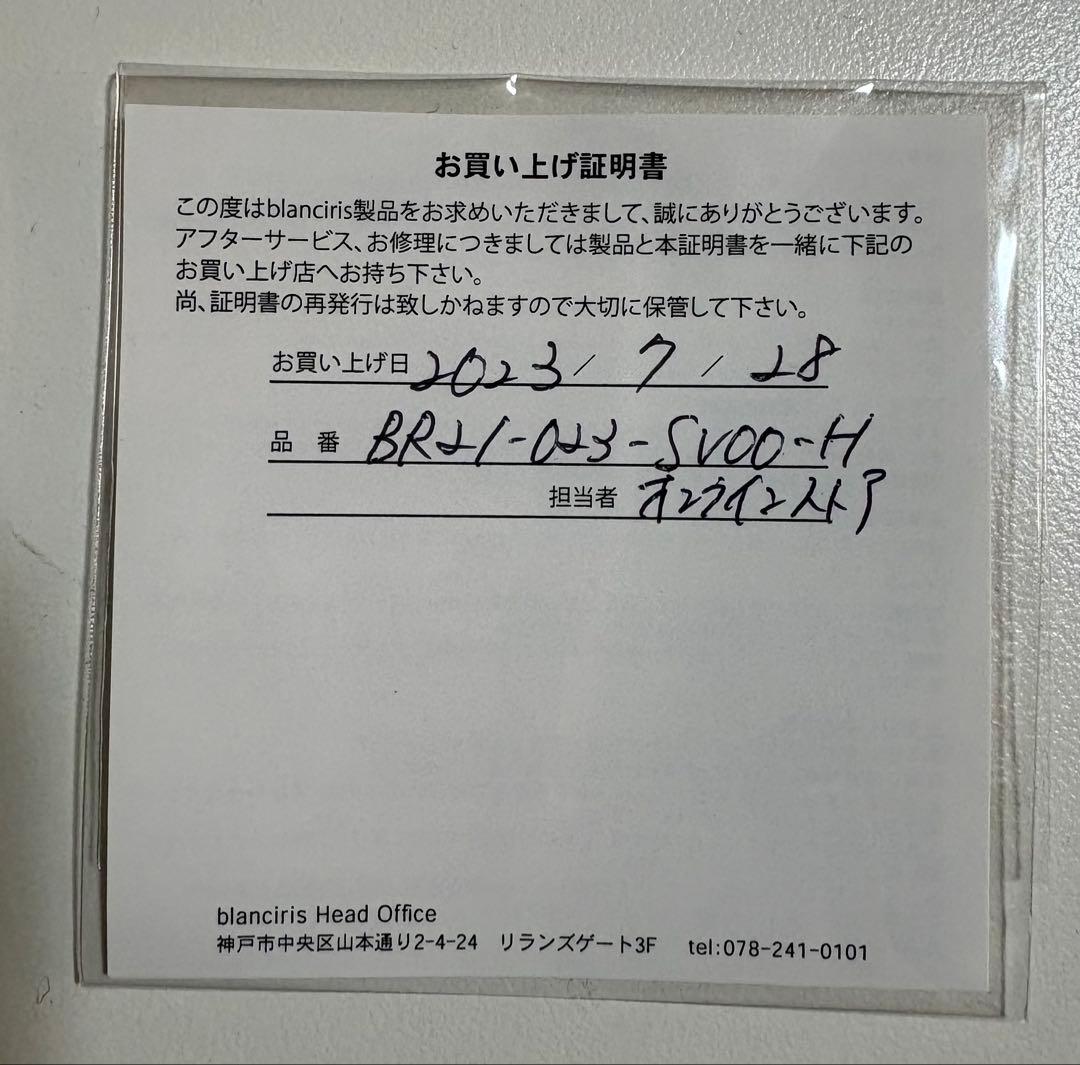 お買い上げ証明書
この度はblanciris製品をお求めいただきまして、誠にありがとうございます。
アフターサービス、お修理につきましては製品と本証明書を一緒に下記の
お買い上げ店へお持ち下さい。
尚、証明書の再発行は致しかねますので大切に保管して下さい。
お買い上げ日 2023 / 7 / 28
品 番 BR21-023-SV00-H
担当者 オンラインストア
blanciris Head Office
神戸市中央区山本通り2-4-24 リランズゲート3F tel:078-241-0101